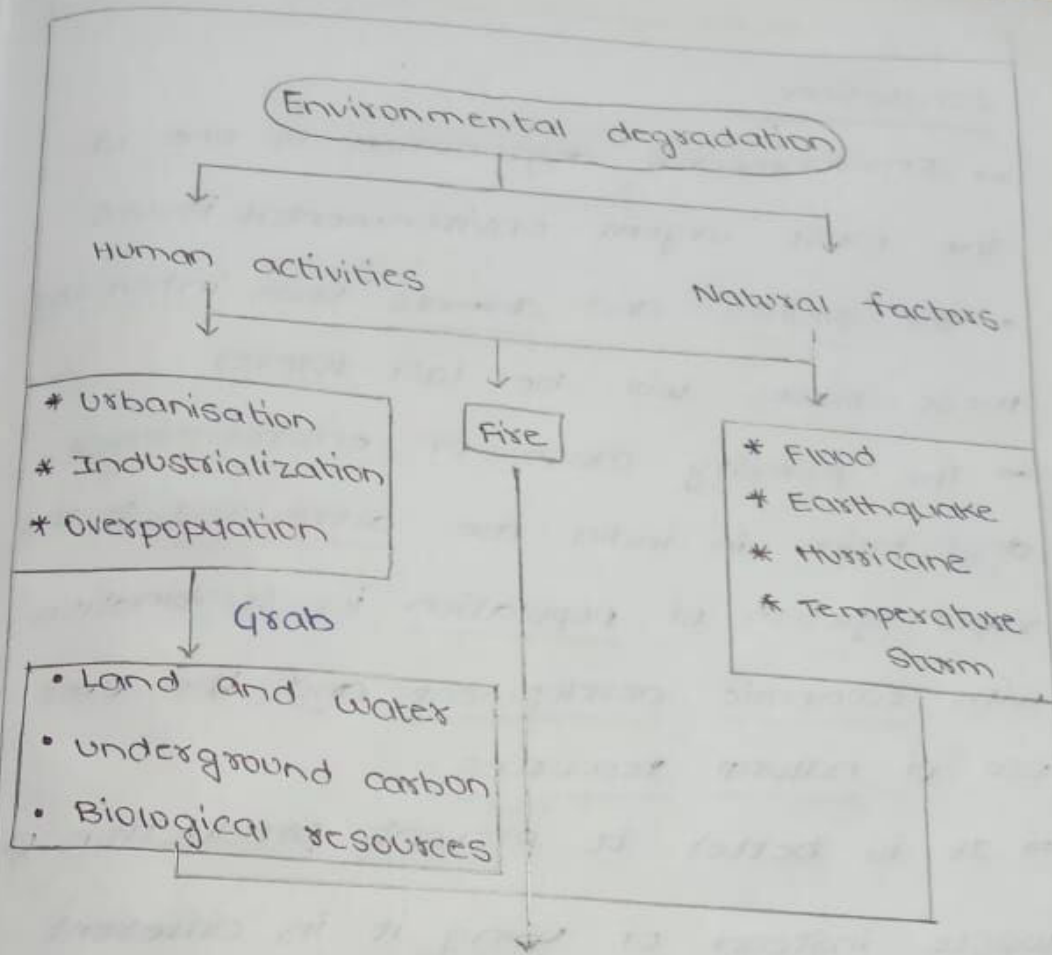 Environmental degradation
Human activities
Natural factors.
* Urbanisation
* Industrialization
* Overpopulation
Fire
* Flood
* Earthquake
* Hurricane
* Temperature
Storm
Grab
• Land and water
• underground carbon
• Biological resources